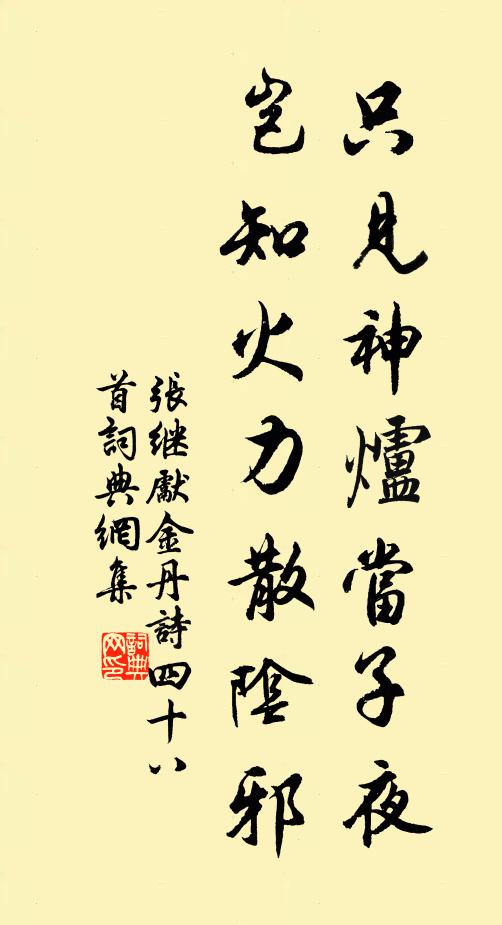 只見神爐當子夜
豈知火力散陰邪
張继獻金丹詩四十八
首詞典網集
詞典網印